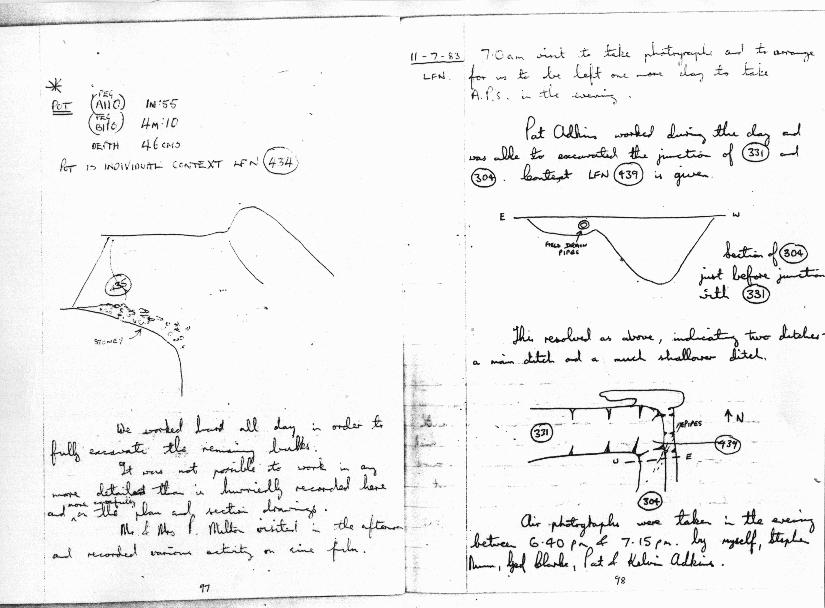 *
POT
PEG
(A110) 1M:55
PEG
(B110) 4M:10
DEPTH 46 CMS
POT IS INDIVIDUAL CONTEXT LFN 434
435
STONEY
We worked hard all day in order to
fully excavate the remaining bulks.
It was not posible to work in any
more detailed than is hurriedly recorded here
and more carefully on the plan and section drawings.
Mr & Mrs P. Melton visited in the afternoon
and recorded various activity on cine film.
97
11-7-83 7.0am visit to take photographs and to arrange
LFN. for us to be left one more day to take
A.P.s. in the evening.
Pat Adkins worked during the day and
was able to excavated the junction of 331 and
304. Context LFN 439 is given.
E W
FIELD DRAIN
PIPES
Section of 304
just before junction
with 331
This resolved as above, indicating two ditches-
a main ditch and a much shallower ditch.
N
PIPES
331
439
E
304
Air photographs were taken in the evening
between 6.40 pm & 7.15 pm. by myself, Stephen
Nunn, Ged Clarke, Pat & Kelvin Adkins.
98